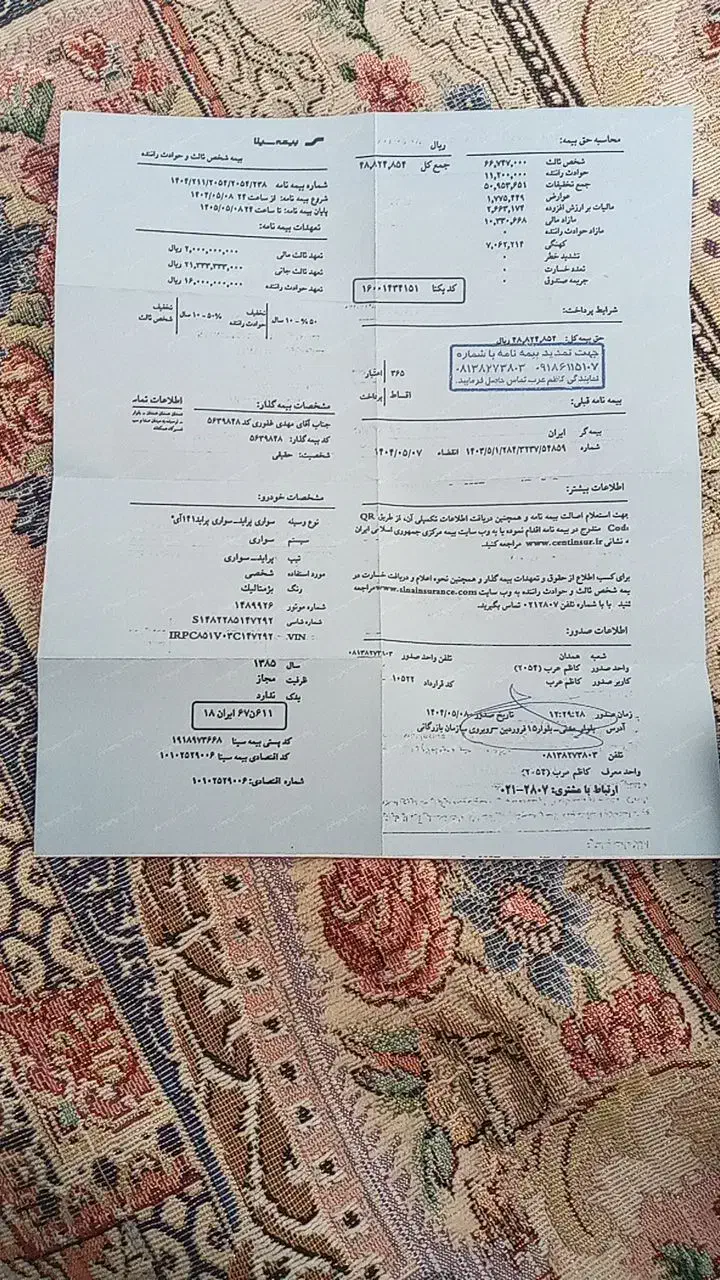 محاسبه حق بیمه:
شخص ثالث ۶۶,۷۴۷,۰۰۰
حوادث راننده ۱۱,۲۰۰,۰۰۰
جمع تخفیفات ۵۰,۹۵۳,۶۵۱
عوارض ۱,۷۷۵,۴۴۹
مالیات بر ارزش افزوده ۲,۶۶۳,۱۷۴
مازاد مالی ۱۰,۳۳۰,۶۶۸
مازاد حوادث راننده
کهنگی ۷,۰۶۲,۲۱۴
تشدید خطر ۰
تعدد خسارت ۰
جریمه صندوق ۰
ریال
جمع کل ۴۸,۸۲۴,۸۵۴
کد یکتا ۱۶۰۰۱۴۳۴۱۵۱
شرایط پرداخت:
حق بیمه کل: ۴۸,۸۲۴,۸۵۴ ریال
جهت تمدید بیمه نامه با شماره
۰۹۱۸۶۱۱۵۱۰۷ ۰۸۱۳۸۲۷۳۸۰۳
نمایندگی کاظم عرب تماس حاصل فرمایید.
۳۶۵ اعتبار
اقساط پرداخت
بیمه نامه قبلی:
بیمه گر ایران
شماره ۱۴۰۳/۵/۱/۲۸۴/۳۲۳۷/۵۴۸۵۹ انقضاء ۱۴۰۴/۰۵/۰۷
اطلاعات بیشتر:
جهت استعلام اصالت بیمه نامه و همچنین دریافت اطلاعات تکمیلی آن، از طریق QR
Code مندرج در بیمه نامه اقدام نموده یا به وب سایت بیمه مرکزی جمهوری اسلامی ایران
نشانی www.centinsur.ir مراجعه کنید.
برای کسب اطلاع از حقوق و تعهدات بیمه گذار و همچنین نحوه اعلام و دریافت خسارت در
بیمه شخص ثالث و حوادث راننده به وب سایت www.sinainsurance.com مراجعه
کنید یا با شماره تلفن ۰۲۱۲۸۰۷ تماس بگیرید.
اطلاعات صدور:
شعبه همدان تلفن واحد صدور ۰۸۱۳۸۲۷۳۸۰۳
واحد صدور کاظم عرب (۲۰۵۴)
کاربر صدور کاظم عرب کد قرارداد ۱۰۵۲۲
زمان صدور ۱۲:۲۹:۲۸ تاریخ صدور ۱۴۰۴/۰۵/۰۸
آدرس بلوار مدنی - بلوار ۱۵ فروردین - روبروی سازمان بازرگانی
تلفن ۰۸۱۳۸۲۷۳۸۰۳
واحد معرف کاظم عرب (۲۰۵۴)
ارتباط با مشتری: ۰۲۱-۲۸۰۷
بیمه سینا
بیمه شخص ثالث و حوادث راننده
شماره بیمه نامه ۱۴۰۴/۲۱۱/۲۰۵۴/۲۰۵۴/۲۳۸
شروع بیمه نامه: از ساعت ۲۴ ۱۴۰۴/۰۵/۰۸
پایان بیمه نامه: تا ساعت ۲۴ ۱۴۰۵/۰۵/۰۸
تعهدات بیمه نامه:
تعهد ثالث مالی ۲,۰۰۰,۰۰۰,۰۰۰ ریال
تعهد ثالث جانی ۲۱,۳۳۳,۳۳۳,۰۰۰ ریال
تعهد حوادث راننده ۱۶,۰۰۰,۰۰۰,۰۰۰ ریال
۵۰% - ۱۰ سال تخفیف حوادث راننده ۵۰% - ۱۰ سال تخفیف شخص ثالث
مشخصات بیمه گذار:
جناب آقای مهدی غفوری کد ۵۶۳۹۸۴۸
کد بیمه گذار: ۵۶۳۹۸۴۸
شخصیت: حقیقی
اطلاعات تماس
مشخصات خودرو:
نوع وسیله سواری پراید-سواری پراید۱۴۱آی*
سیستم سواری
تیپ پراید-سواری
مورد استفاده شخصی
رنگ بژمتالیک
شماره موتور ۱۴۸۹۹۲۶
شماره شاسی S۱۴۸۲۲۸۵۱۴۷۲۹۲
VIN: IRPC۸۵۱V۰۳C۱۴۷۲۹۲
سال ۱۳۸۵
ظرفیت مجاز
یدک ندارد
۶۱۱ن۶۷ ایران ۱۸
کد پستی بیمه سینا ۱۹۱۸۹۷۳۶۶۸
کد اقتصادی بیمه سینا ۱۰۱۰۲۵۲۹۰۰۶
شماره اقتصادی: ۱۰۱۰۲۵۲۹۰۰۶